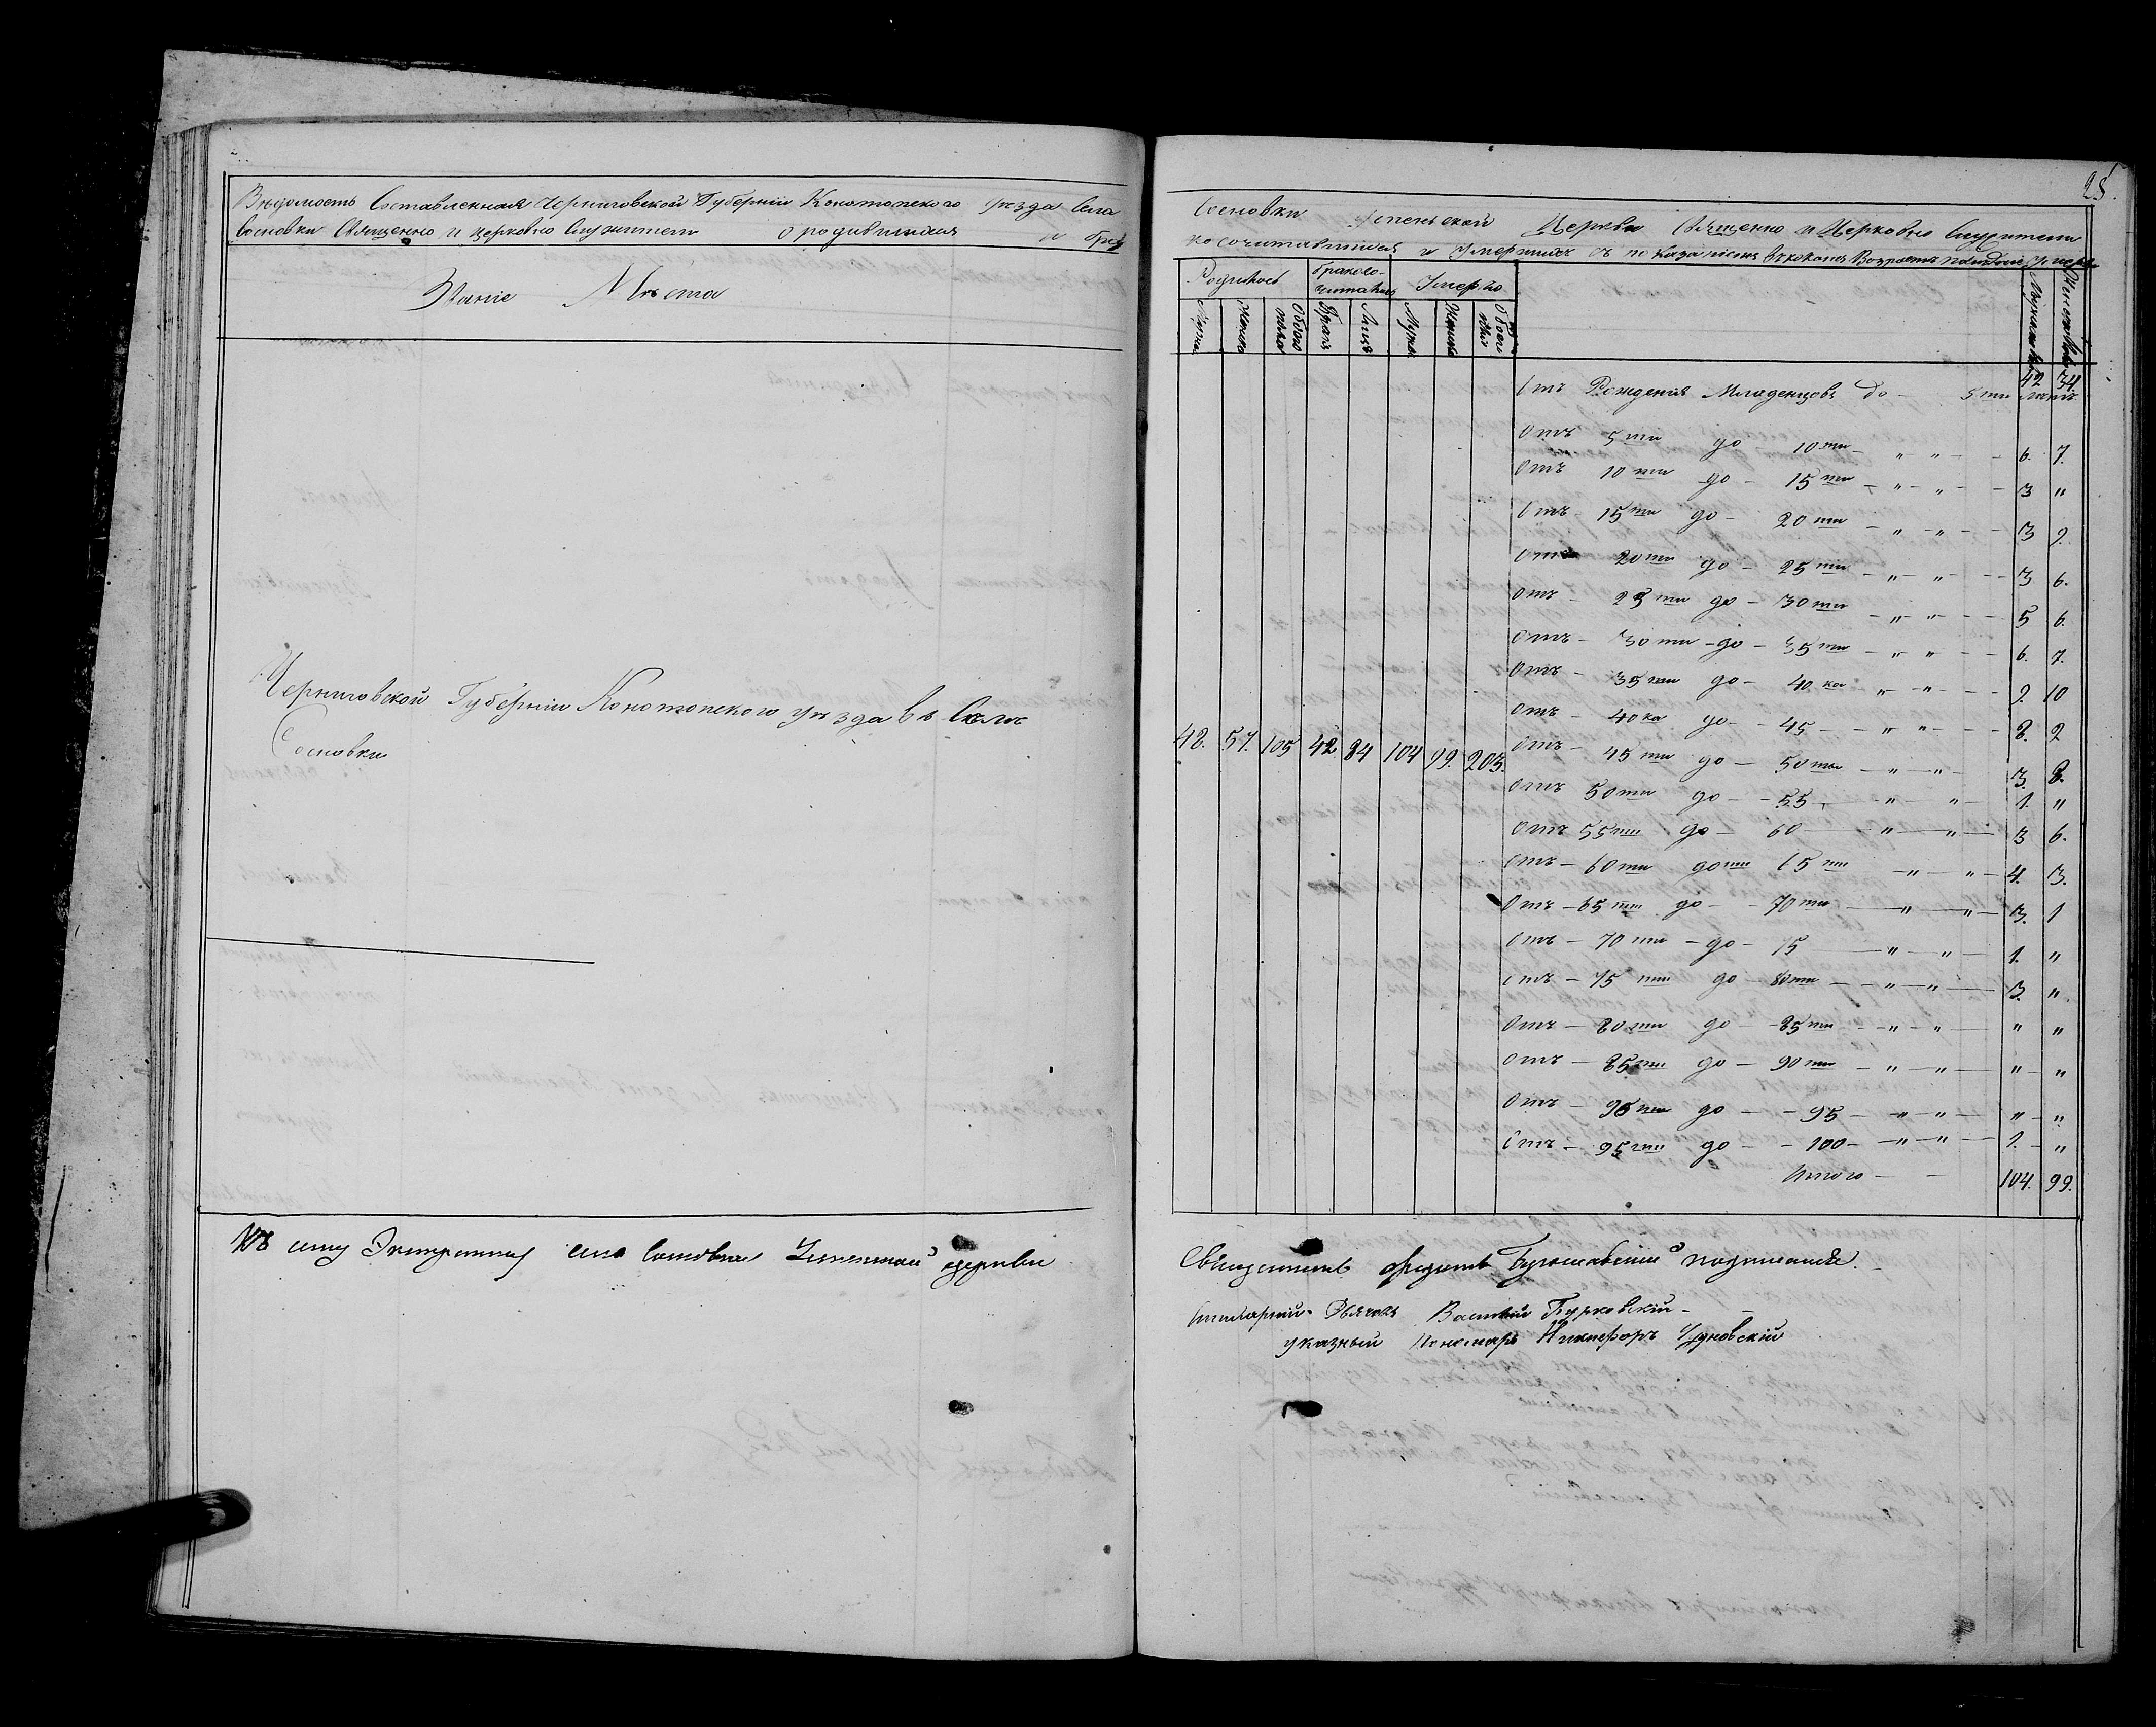 Вѣдомость Составленная Черниговской Губерніи Конотопскаго уѣзда Села
Сосновки Священно и церковно Служители о родившихся и бра
Званіе Мѣста
Черниговской Губерніи Конотопскаго уѣзда въ Селѣ
Сосновки
Къ сему Экстракту села Сосновки Успенской церкви
25.
Сосновки Успенской Церкви Священно и Церковно Служители
ко сочитавшихся и Умершихъ съ показаніемъ
Родилось
бракосо-
читалось
Умерло
Мужска
Женска
Обоего
пола
Бракъ
Лицъ
Мужс
Женска
Обоего
Мужска
Женска
48. 57. 105 42 84 104 99. 203.
Отъ Рожденія Младенцовъ до 5 ти лѣтъ 42 34.
Отъ 5 ти до 10 ти " " 6. 7.
Отъ 10 ти до 15 ти " " 3 "
Отъ 15 ти до 20 ти " " 3 9.
Отъ 20 ти до 25 ти " " 3 6.
Отъ 25 ти до 30 ти " " 5 6.
Отъ 30 ти до 35 ти " " 6. 7.
Отъ 35 ти до 40 ка " " 9. 10
Отъ 40 ка до 45 " " 8. 2
Отъ 45 ти до 50 ти " " 3. 8.
Отъ 50 ти до 55 " " 1. "
Отъ 55 ти до 60 " " 3 6.
Отъ 60 ти до 65 ти " " 4. 3.
Отъ 65 ти до 70 ти " " 3. 1
Отъ 70 ти до 75 " " 1. "
Отъ 75 ти до 80 ти " " 3. "
Отъ 80 ти до 85 ти " " " "
Отъ 85 ти до 90 ти " " " "
Отъ 90 ти до 95 " " " "
Отъ 95 ти до 100 " " 1. "
Итого 104. 99.
Священникъ подписался.
Дьячокъ Василій Бурковскій
указный Пономарь Никифоръ